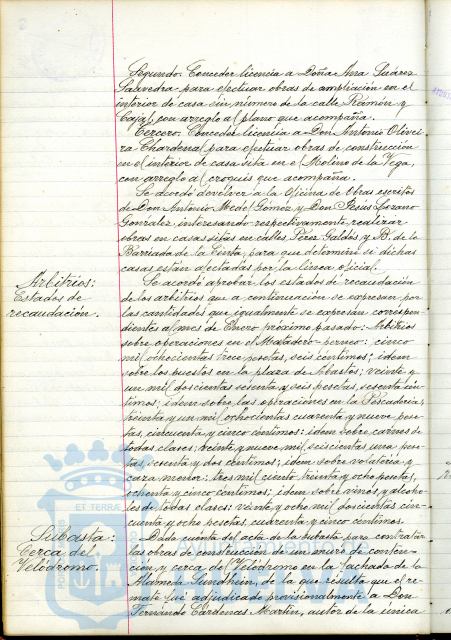 Segundo: Conceder licencia a Doña Ana Suárez
Saavedra para efectuar obras de ampliación en el
interior de casa sin número de la calle Ramón y
Cajal, con arreglo al plano que acompaña.
Tercero: Conceder licencia a Don Antonio Olivei-
ra Chardenal para efectuar obras de construcción
en el interior de casa sita en el Molino de la Vega,
con arreglo al croquis que acompaña.
Se acordó devolver a la Oficina de Obras escritos
de Don Antonio Medel Gómez y Don Jesús Lozano
González, interesando respectivamente realizar
obras en casas sitas en calles Pérez Galdós y B. de la
Barriada de la Cinta, para que determine si dichas
casas están afectadas por la línea oficial.
Arbitrios:
Estados de
recaudación.
Se acordó aprobar los estados de recaudación
de los arbitrios que a continuación se expresan por
las cantidades que igualmente se expresan correspon-
dientes al mes de Enero próximo pasado: Arbitrios
sobre operaciones en el Matadero-perneo: cinco
mil ochocientas trece pesetas, seis céntimos; idem
sobre los puestos en la plaza de Abastos; veinte y
un mil doscientas setenta y seis pesetas, sesenta cén-
timos; idem sobre las operaciones en la Pescadería;
treinta y un mil ochocientas cuarenta y nueve pese-
tas, cincuenta y cinco céntimos: idem sobre carnes de
todas clases: veinte y nueve mil seiscientas una pese-
tas, setenta y dos céntimos; idem sobre volatería y
caza menor: tres mil ciento treinta y ocho pesetas,
ochenta y cinco céntimos; idem sobre vinos y alcoho-
les de todas clases: veinte y ocho mil doscientas cin-
cuenta y ocho pesetas, cuarenta y cinco céntimos.
Subasta:
Cerca del
Velódromo.
Dada cuenta del acta de la subasta para contratar
las obras de construcción de un muro de conten-
ción y cerca del Velódromo en la fachada de la
Alameda Sundheim, de la que resulta que el re-
mate fué adjudicado provisionalmente a Don
Fernando Cárdenas Martín, autor de la única
ET TERRÆ